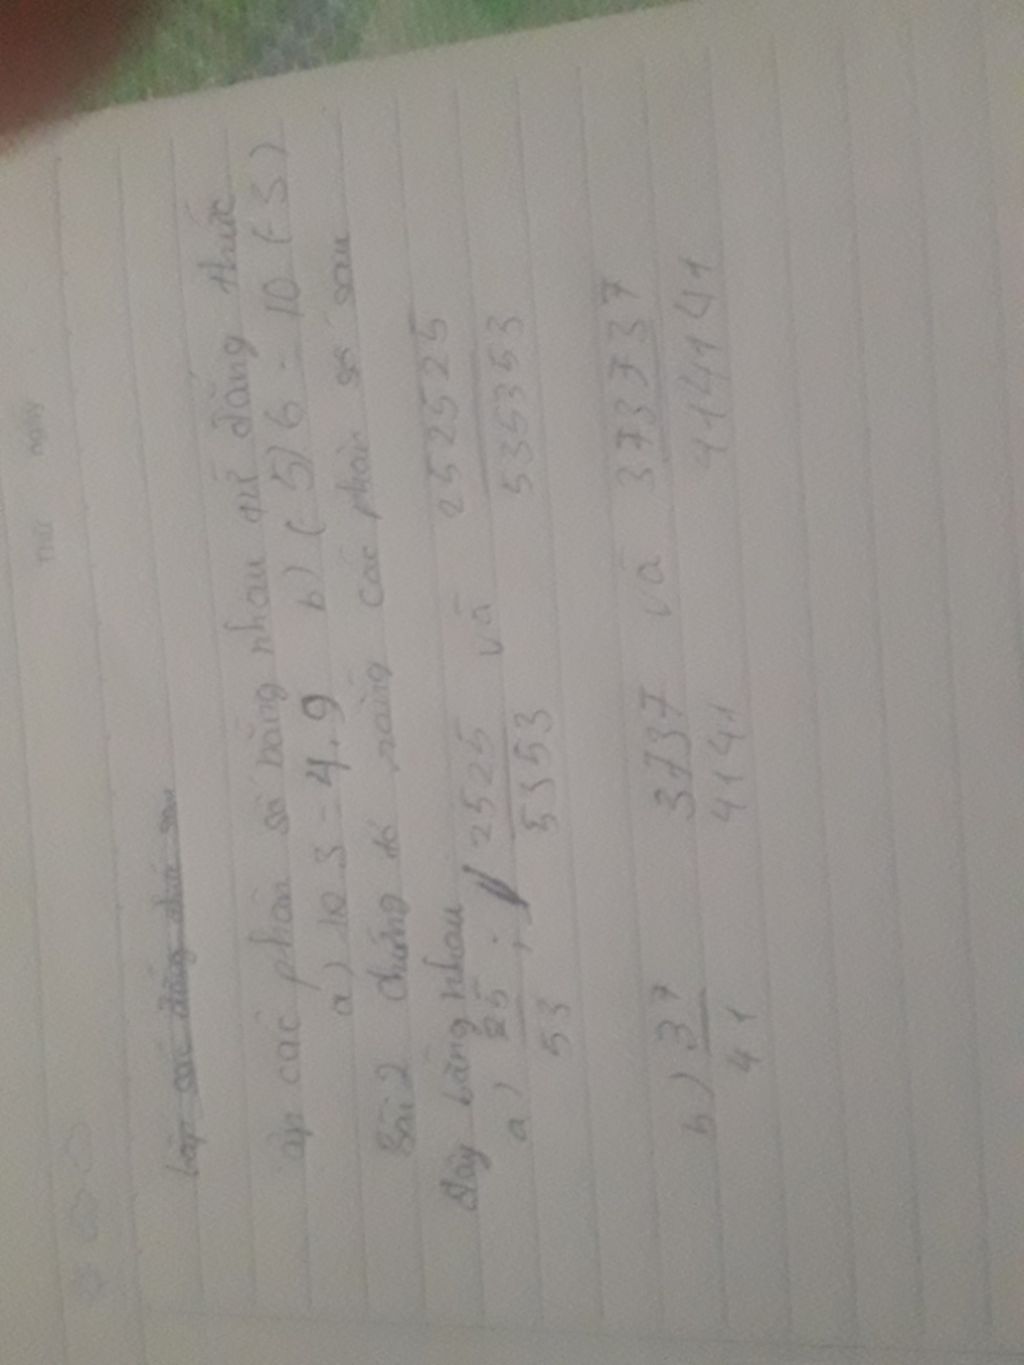 Lập các đẳng thức sau
ập các phân số bằng nhau từ đẳng thức
a) 10.3 = 4.9 b) (-5)6 = 10(-3)
Bài 2 chứng tỏ rằng các phân số sau
đây bằng nhau
a) 25/53 ; 2525/5353 và 252525/535353
b) 37/41 3737/4141 và 373737/414141